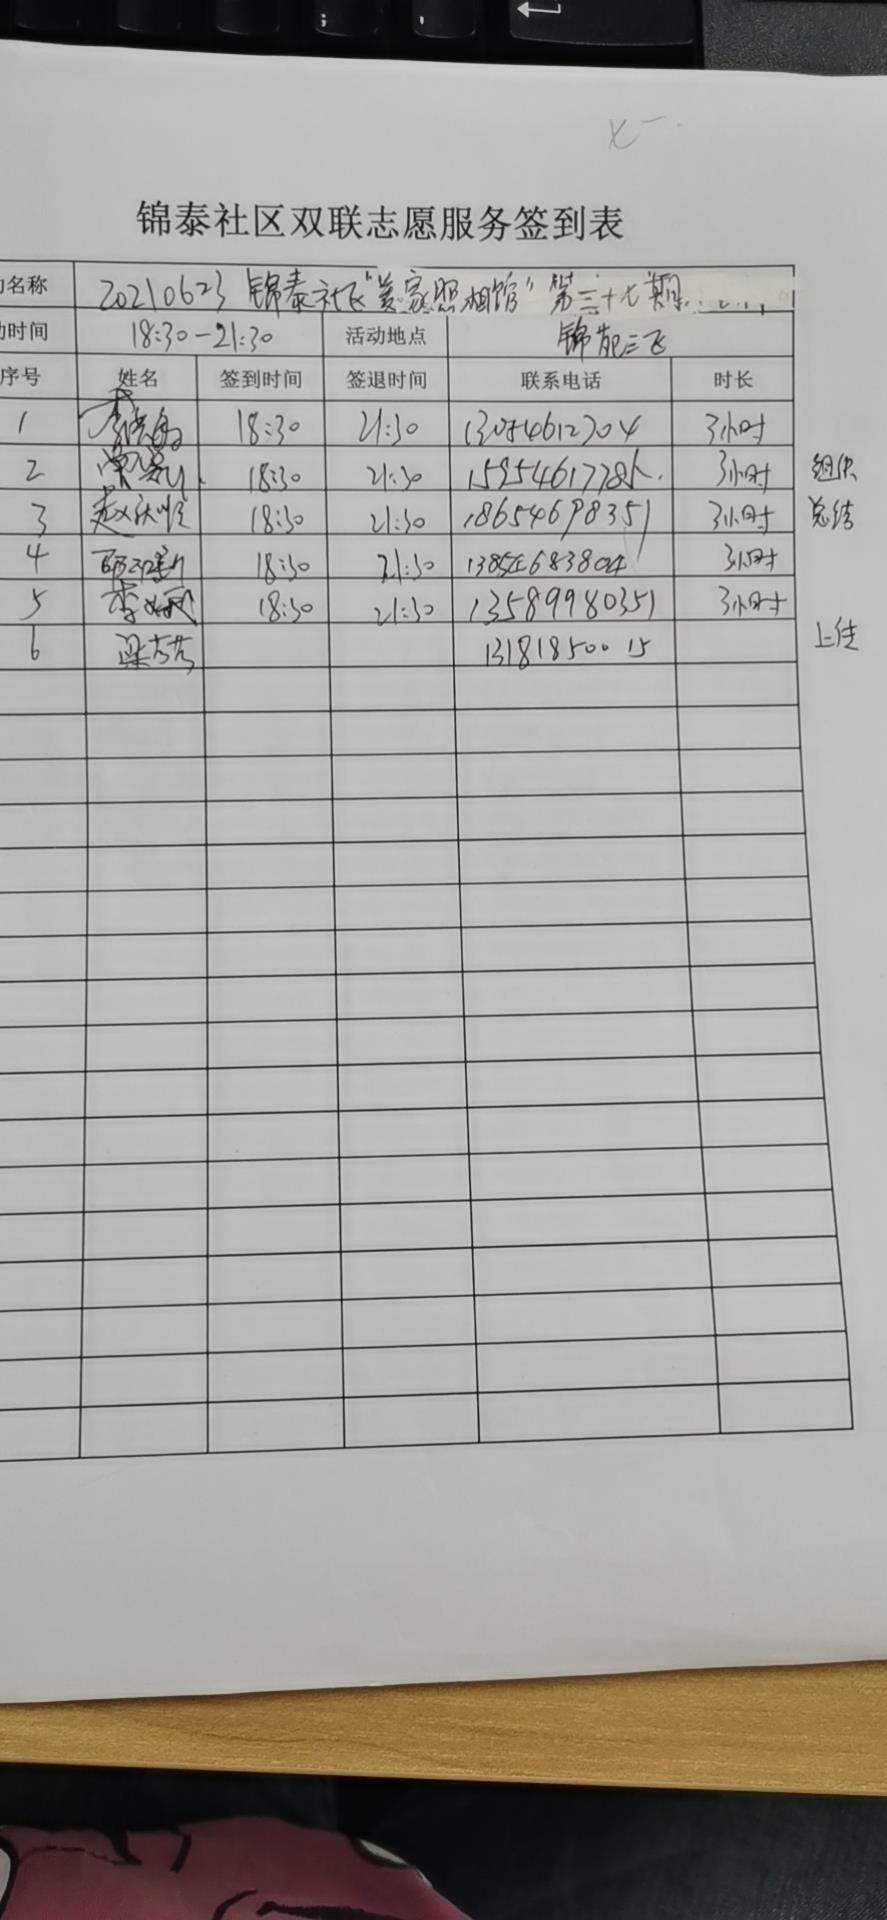 锦泰社区双联志愿服务签到表
名称 20210623 锦泰社区"美家照相馆"第三十七期
时间 18:30-21:30 活动地点 锦苑三区
序号 姓名 签到时间 签退时间 联系电话 时长
1 18:30 21:30 3小时
2 18:30 21:30 3小时 组织
3 赵庆顺 18:30 21:30 18654698351 3小时 总结
4 18:30 21:30 3小时
5 18:30 21:30 13589980351 3小时
6 梁芳芳 13181850015 上传